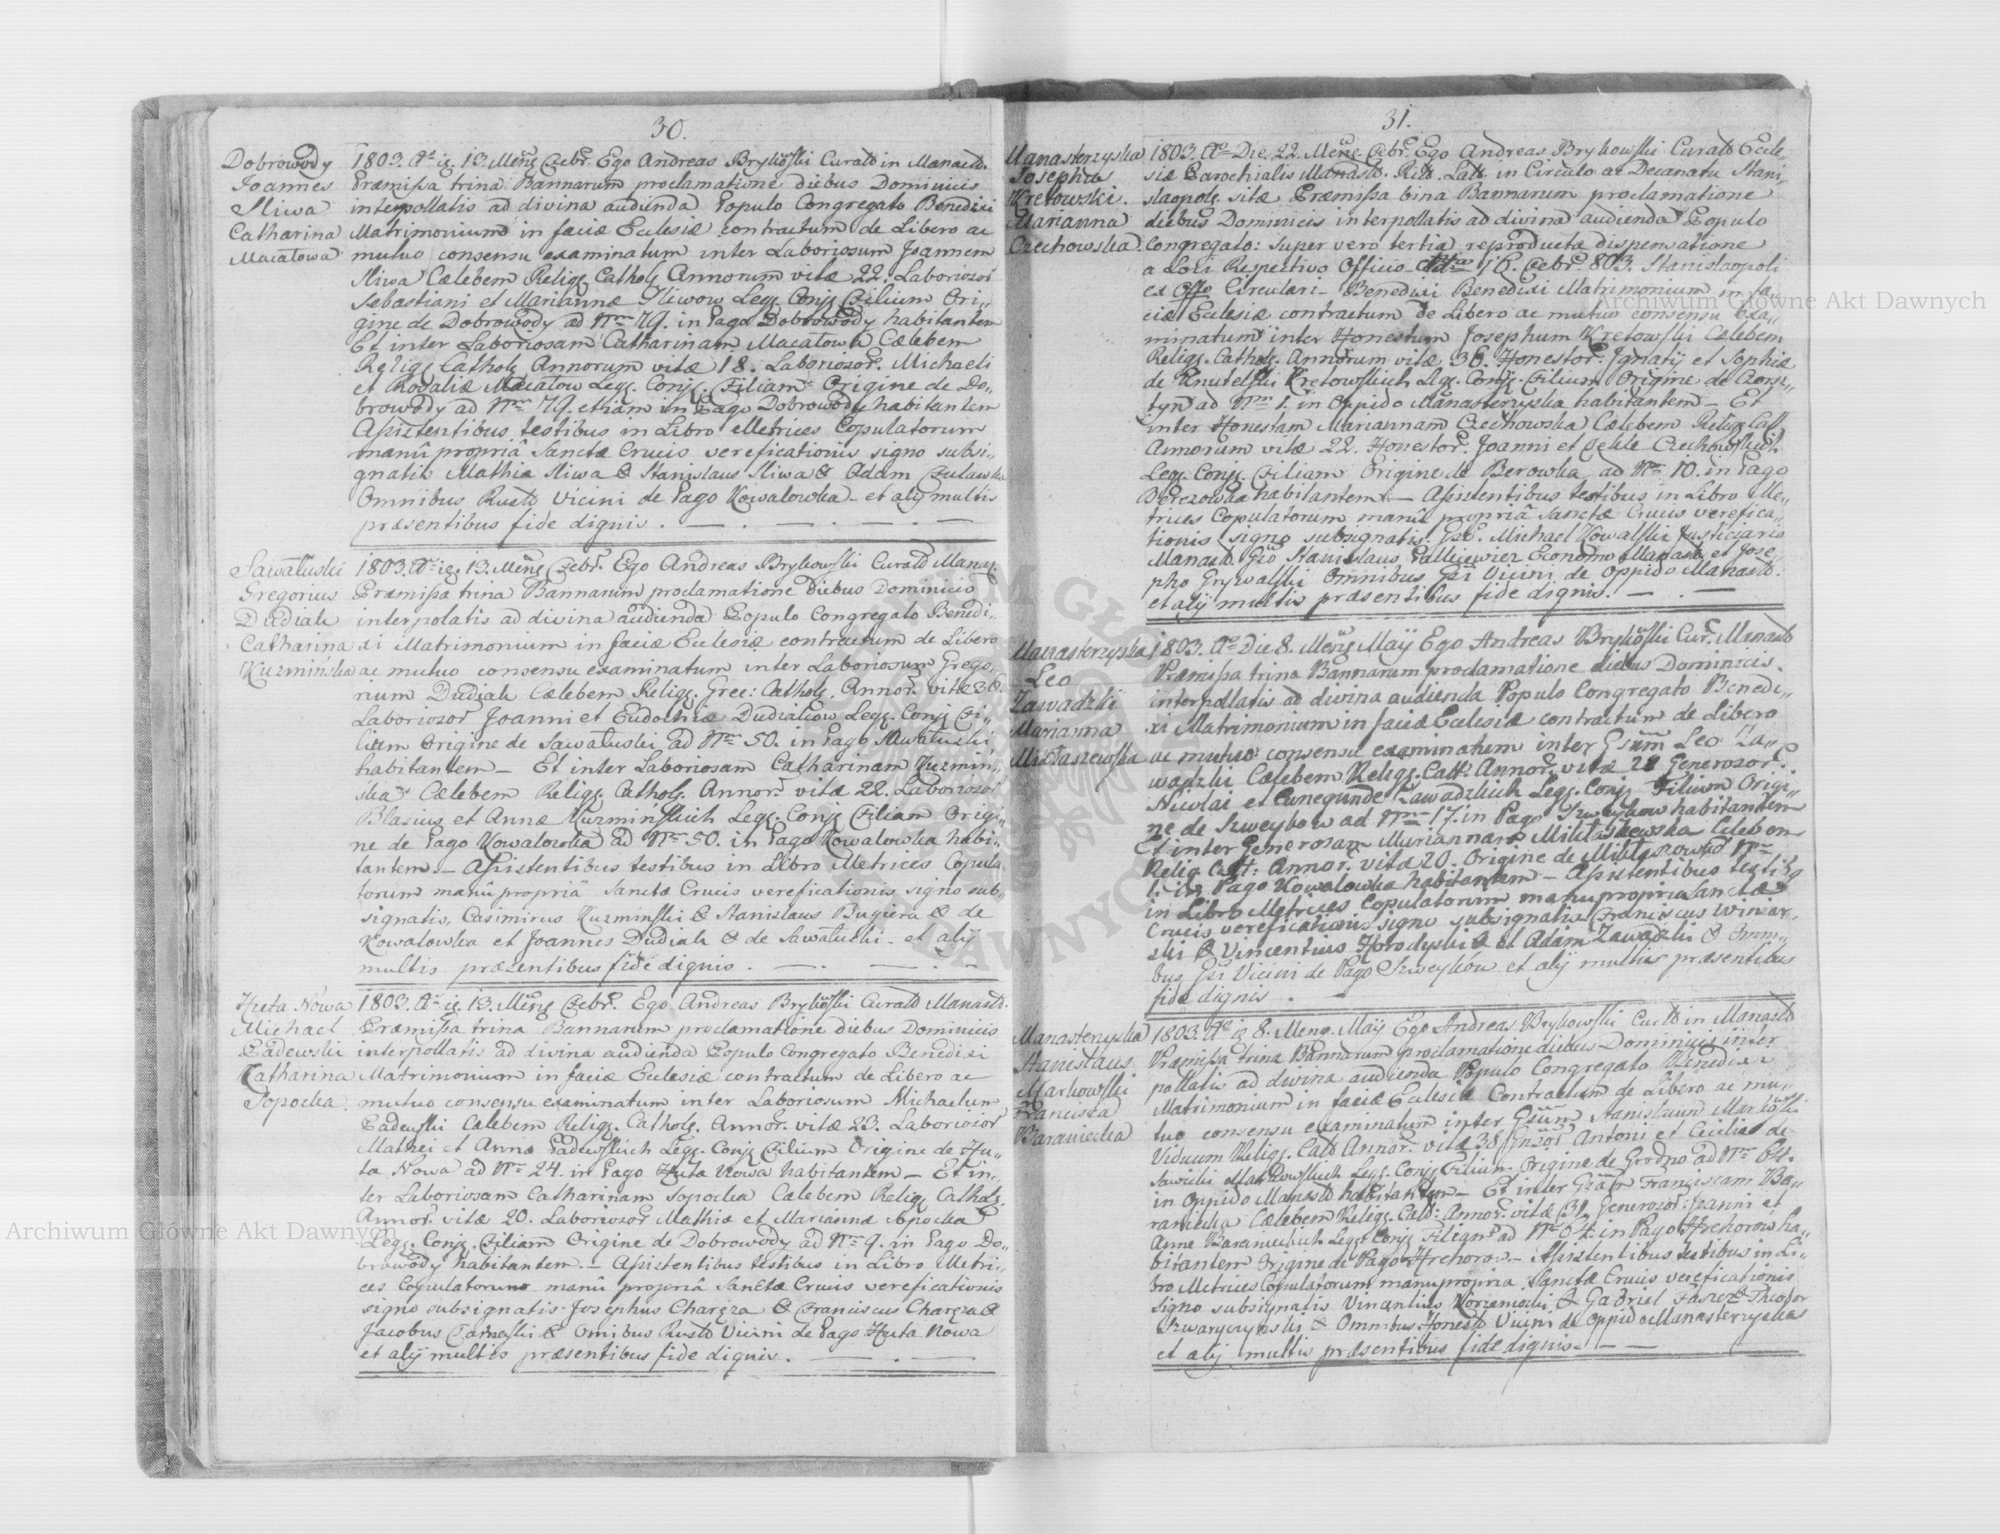 30.
Dobrowody
Joannes
Sliwa
Catharina
Macałowa
1803. Aº ig. 13. Mens Febr. Ego Andreas Brykowski Curatd in Manastd.
Præmissa trina Bannarum proclamatione diebus Dominicis
interpollatis ad divina audienda Populo Congregato Benedixi
Matrimonium in faciæ Eclesiæ contractum de Libero ac
mutuo consensu examinatum inter Laboriosum Joannem
Sliwa Cælebem Relig. Cathol. Annorum vitæ 22. Laboriosor
Sebastiani et Mariannæ Sliwow Leg. Conj. Filium Ori„
gine de Dobrowody ad Nrm 79. in Pago Dobrowody habitantem
Et inter Laboriosam Catharinam Macałowk Cælebem
Relig. Cathol. Annorum vitæ 18. Laboriosor. Michaeli
et Rosaliæ Macałow Leg. Conj. Filiam Origine de Do„
browody ad Nrm 79. etiam in Pago Dobrowody habitantem
Assistentibus testibus in Libro Metrices Copulatorum
manû propriâ Sanctæ Crucis vereficationis signo subsi„
gnatis Mathia Sliwa & Stanislaus Sliwa & Adam
Omnibus Rustd Vicini de Pago Kowalowka et alÿ multis
præsentibus fide dignis.
Sawałuski
Gregorius
Dudiak
Catharina
Kuzmińska
1803. Aº ig. 13. Mens Febr. Ego Andreas Brykowski Curatd Manas.
Præmissa trina Bannarum proclamatione diebus Dominicis
interpolatis ad divina audienda Populo Congregato Benedi„
xi Matrimonium in faciæ Eclesiæ contractum de Libero
ac mutuo consensu examinatum inter Laboriosum Grego„
rium Dudiak Cælebem Relig. Grec: Cathol. Annor. vitæ 36.
Laboriosor Joanni et Eudochiæ Dudiakow Leg. Conj. Fi„
lium Origine de Sawałuski ad Nrm 50. in Pago Sawałuski
habitantem — Et inter Laboriosam Catharinam Kuzmin„
ska Cælebem Relig. Cathol. Annor. vitæ 22. Laboriosor
Blasius et Annæ Kuzminskich Leg. Conj. Filiam Origi„
ne de Pago Kowalowka ad Nrm 50. in Pago Kowalowka habi„
tantem — Assistentibus testibus in Libro Metrices Copula„
torum manû propriâ Sanctæ Crucis vereficationis signo sub„
signatis, Casimirus Kuzminski & Stanislaus Bugiera & de
Kowalowka et Joannes Dudiak & de Sawałuski et alÿ
multis præsentibus fide dignis.
Huta Nowa
Michael
Padewski
Catharina
Sopocka
1803. Aº ig. 13. Mens Febr. Ego Andreas Brykowski Curatd Manastd.
Præmissa trina Bannarum proclamatione diebus Dominicis
interpollatis ad divina audienda Populo Congregato Benedixi
Matrimonium in faciæ Eclesiæ contractum de Libero ac
mutuo consensu examinatum inter Laboriosum Michaelum
Padewski Cælebem Relig. Cathol. Annor. vitæ 23. Laboriosor
Mathei et Annæ Padewskich Leg. Conj. Filium Origine de Hu„
ta Nowa ad Nrm 24. in Pago Huta Nowa habitantem — Et in„
ter Laboriosam Catharinam Sopocka Cælebem Relig. Cathol.
Annor. vitæ 20. Laboriosor Mathiæ et Mariannæ Sopocka
Leg. Conj. Filiam Origine de Dobrowody ad Nrm 9. in Pago Do„
browody habitantem — Assistentibus testibus in Libro Metri„
ces Copulatorum manû propriâ Sanctæ Crucis vereficationis
signo subsignatis Josephus Charęza & Franciscus Charęza &
Jacobus Tarneski & Omnibus Rustd Vicini de Pago Huta Nowa
et alÿ multis præsentibus fide dignis.
31.
Manasterzyska
Josephus
Kretowski.
Marianna
Czechowska.
1803. Aº Die 22. Mens Febr. Ego Andreas Brykowski Curatd Ecle„
siæ Parochialis Manastd. Ritt. Latt. in Circulo ac Decanatu Stani„
slaopol. sitæ Præmissa bina Bannarum proclamatione
diebus Dominicis interpollatis ad divina audienda Populo
Congregato: super vero tertia reproducta dispensatione
a Loci Respectivo Officio 16. Febr. 803. Stanislaopoli
ex Offo Circulari Benedixi Matrimonium in fa„
ciæ Eclesiæ contractum de Libero ac mutuo consensu exa„
minatum inter Honestum Josephum Kretowski Cælebem
Relig. Cathol. Annorum vitæ 36. Honestor. Ignatÿ et Sophiæ
de Knutelski Kretowskich Leg. Conj. Filium Origine de
tyn ad Nrm 1. in Oppido Manasterzyska habitantem — Et
inter Honestam Mariannam Czechowska Cælebem Relig. Cath.
Annorum vitæ 22. Honestor. Joanni et Czechowskich
Leg. Conj. Filiam Origine de Berowka ad Nrm 10. in Pago
Berezowka habitantem — Assistentibus testibus in Libro Me„
trices Copulatorum manû propriâ Sanctæ Crucis verefica„
tionis signo subsignatis Michael Kowalski Justiciario
Manastd. Stanislaus Economo Manastd et Jose„
pho Grywalski Omnibus Vicini de Oppido Manastd.
et alÿ multis præsentibus fide dignis.
Manasterzyska
Leo
Zawadzki
Marianna
Miłaszewska
1803. Aº Die 8. Mens Maÿ Ego Andreas Brykowski Cur. Manastd
Præmissa trina Bannarum proclamatione diebus Dominicis
interpollatis ad divina audienda Populo Congregato Benedi„
xi Matrimonium in faciæ Eclesiæ contractum de Libero
ac mutuo consensu examinatum inter Gsum Leo Za„
wadzki Cælebem Relig. Catt. Annor. vitæ 28 Generosor.
Nicolai et Cunegundæ Zawadzkich Leg. Conj. Filium Origi„
ne de Szweykow ad Nrm 17. in Pago Szweykow habitantem
Et inter Generosam Mariannam Cælebem
Relig. Catt: Annor. vitæ 20. Origine de Nrm
1. in Pago Kowalowka habitantem — Assistentibus testibus
in Libro Metrices Copulatorum manu propria Sanctæ
Crucis vereficationis signo subsignatis Franciscus Winiar„
ski & Vincentius Horodyski & et Adam Zawadzki & Omni„
bus Vicini de Pago Szweyków et alÿ multis præsentibus
fide dignis.
Manasterzyska
Stanislaus
Markowski
Francisca
Baraniecka
1803. Aº ig 8. Mens. Maÿ Ego Andreas Brykowski Curtd in Manastd
Præmissa trina Bannarum proclamatione diebus Dominicis inter
pollatis ad divina audienda Populo Congregato Benedixi
Matrimonium in faciæ Eclesiæ Contractum de Libero ac mu„
tuo consensu examinatum inter Gsum Stanislaum Markowski
Viduum Relig. Catd Annor. vitæ 38 Antonii et Ceciliæ de
Sawicki Markowskich Leg. Conj. Filium Origine de Grodno ad Nrm 84.
in Oppido Manastd habitantem — Et inter Franciscam Ba„
raniecka Cælebem Relig. Catd: Annor. vitæ 31. Generosor. Joanni et
Annæ Baranieckich Leg. Conj. Filiam ad Nrm 64. in Pago Hrehorow ha„
bitantem Origine de Pago Hrehorow — Assistentibus testibus in Li„
bro Metrices Copulatorum manu propria Sanctæ Crucis vereficationis
signo subsignatis Vincentius & Gabriel & Theodor
& Omnibus Honestd Vicini de Oppido Manasterzyska
et alÿ multis præsentibus fide dignis.
Archiwum Główne Akt Dawnych
Archiwum Główne Akt Dawnych